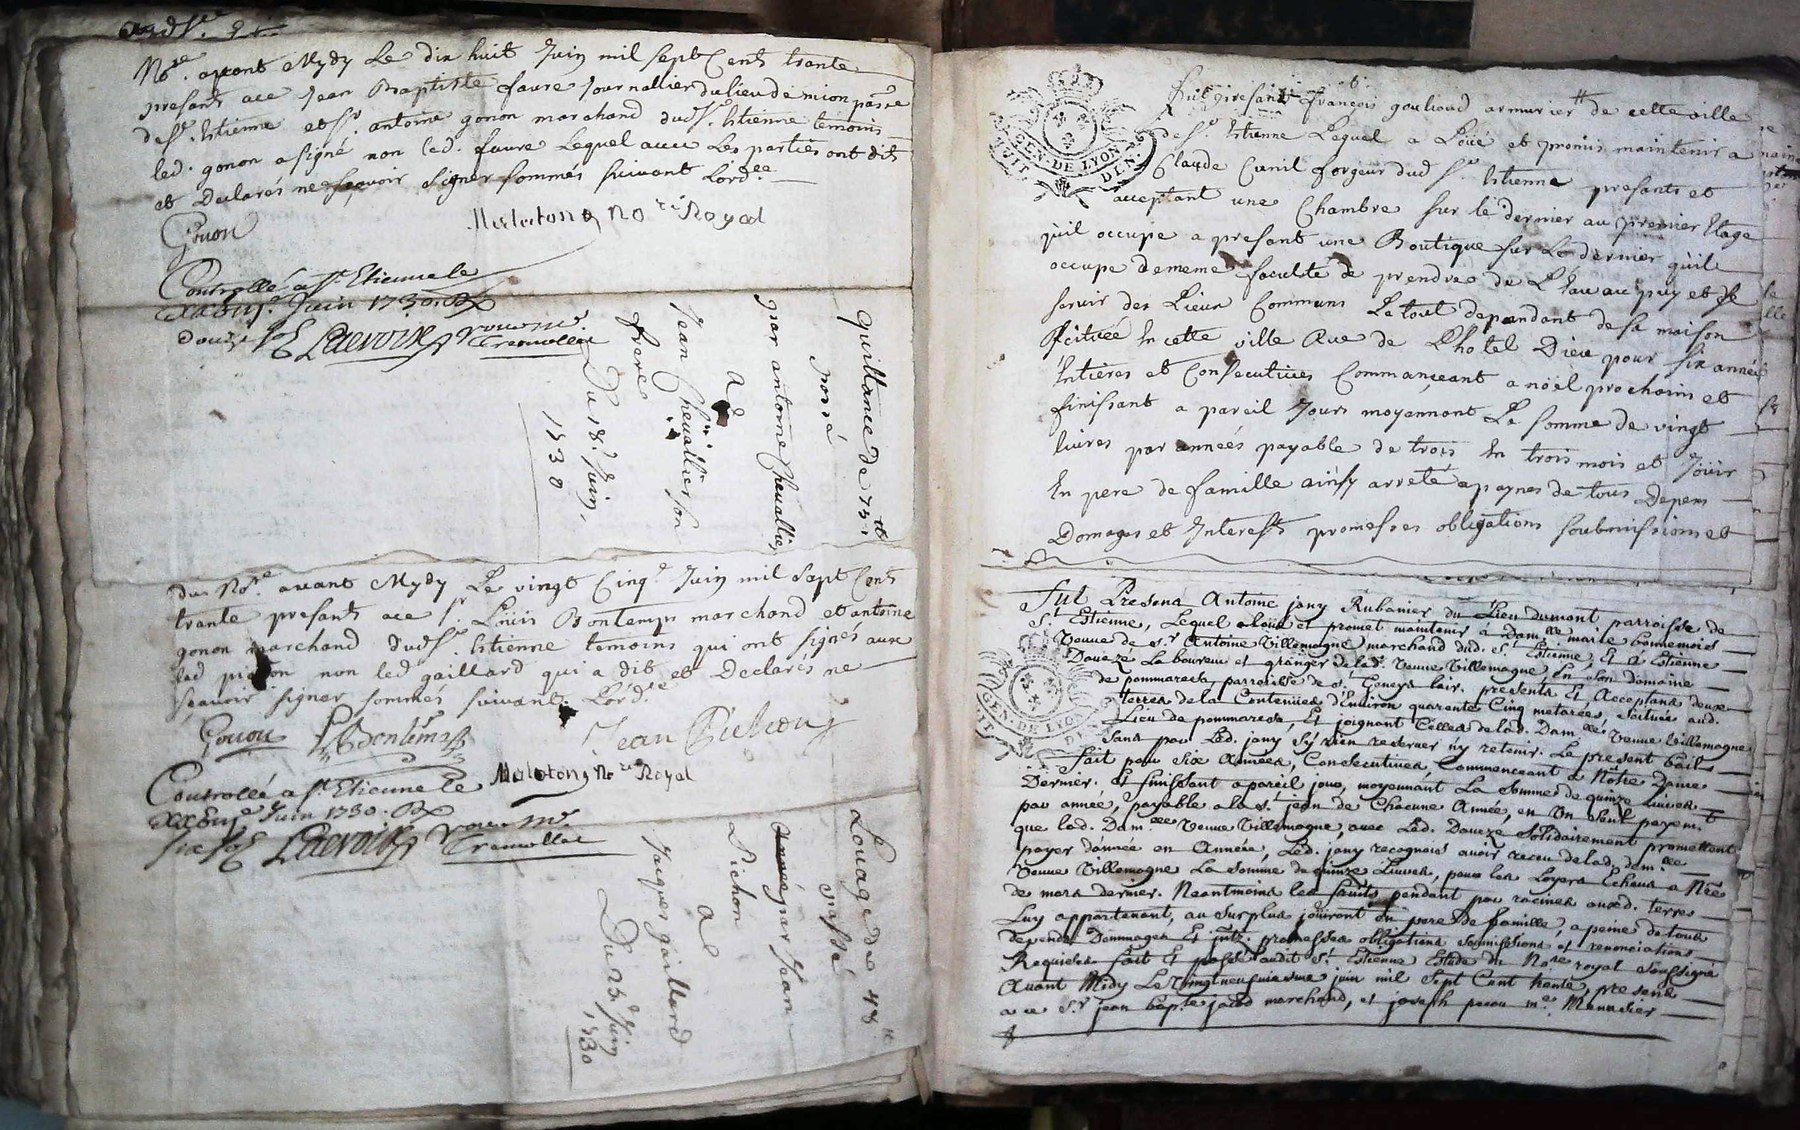 Nore. avant Mydy Le dix huit Juin mil sept Cents trante
presants ace Jean Baptiste faure Journallier du lieu de mion parre
de St. Estienne et Sr. antoine gonon marchand dud St. Estienne temoins
led. gonon a signé non led. faure Lequel avec Les parties ont dits
et Declarés ne sçavoir signer sommés suivant L'ordce
Gonon
Nore Royal
Controllé a St Etienne le
Juin 1730. Rx
douze
quittance de 75tt
passé
par antoine Chevallier
a
Jean Chevallier son
frere
Du 18e. Juin,
1730
du Nore. avant Mydy Le vingt Cinqe. Juin mil sept Cents
trante presants ace sr. Louis Bontemps marchand et antoine
gonon marchand dud St. Estienne temoins qui ont signés avec
led pichon non led gaillard qui a dit et Declarés ne
sçavoir signer sommés suivant L'ordce
Gonon Bontems Jean Pichon
Nore Royal
Controllé a St Etienne le
Juin 1730. Rx
six
Louage de 48tt
passé
par Jean
Pichon
a
Jacques gaillard
Du 25e Juin
1730
fut presant françois goultaud armurier de cette ville
de St. Estienne Lequel a Loüé et promis maintenir a
Claude Cunil forgeur dud St. Estienne presants et
acceptant une Chambre sur le dernier au premier Etage
qu'il occupe a presant une Boutique sur Le dernier qu'il
occupe de meme faculté de prendre de L'Eau au puy et se
servir des Lieux Communs Le tout dependant de sa maison
scituée En cette ville Rue de L'hotel Dieu pour six années
Entières et Consecutives Commançeant a noël prochain et
finissant a pareil Jour moyennant La somme de vingt
livres par années payable de trois En trois mois et Joüir
En pere de famille ainsy arrêté a paynes de tous Depens
Domages et Interests promesses obligations soubmissions et
GEN. DE LYON
Fut Presens Antoine jany Rubanier du Lieu dumont parroisse de
St. Estienne, Lequel a loüé et promet maintenir a Damlle marie bonnemois
Veuve de sr Antoine Villemagne marchand dud. St. Estienne, Et a Estienne
Douezé Laboureur et granger de lad. Veuve Villemagne, En son domaine
de pommarest, parroisse de St. Geneys lair. presents Et Acceptans deux
terres de la Contenües d'Environ quarente Cinq metarées, scituées aud.
Lieu de pommarest, Et joignant Celles de lad. Damlle Veuve Villemagne
sans par Led. jany s'y rien reserver ny retenir. Le present bail
fait pour six Années, Consecutives Commenceant a Nôtre Dame
Dernier. Et finissant a pareil jour, moyennant La somme de quinze Livres
par année, payable a la st. jean de Chacune Année, en Un seul payemt
que lad. Damlle Veuve Villemagne, avec Led. Doueze solidairement promettent
payer d'année en Année, Led. jany recognoit avoir receu de lad. damlle
Veuve Villemagne La somme de quinze Livres, pour les Loyers Echeus a Nre
de mars dernier. Neantmoins les fruits pendant par racines auxd. terres
Luy appartenant, au surplus joüiront En pere de famille, a peine de tous
depends Dommages Et jnts. promesses obligations soumissions et renonciations
Requises fait Et passé audit St. Estienne Etude du Nore royal soussigné
Avant Midy Le Vingtneufvieme juin mil sept Cent trente, presents
a ce sr jean bapte jacod marchand, et joseph me. Menusier
GEN. DE LYON